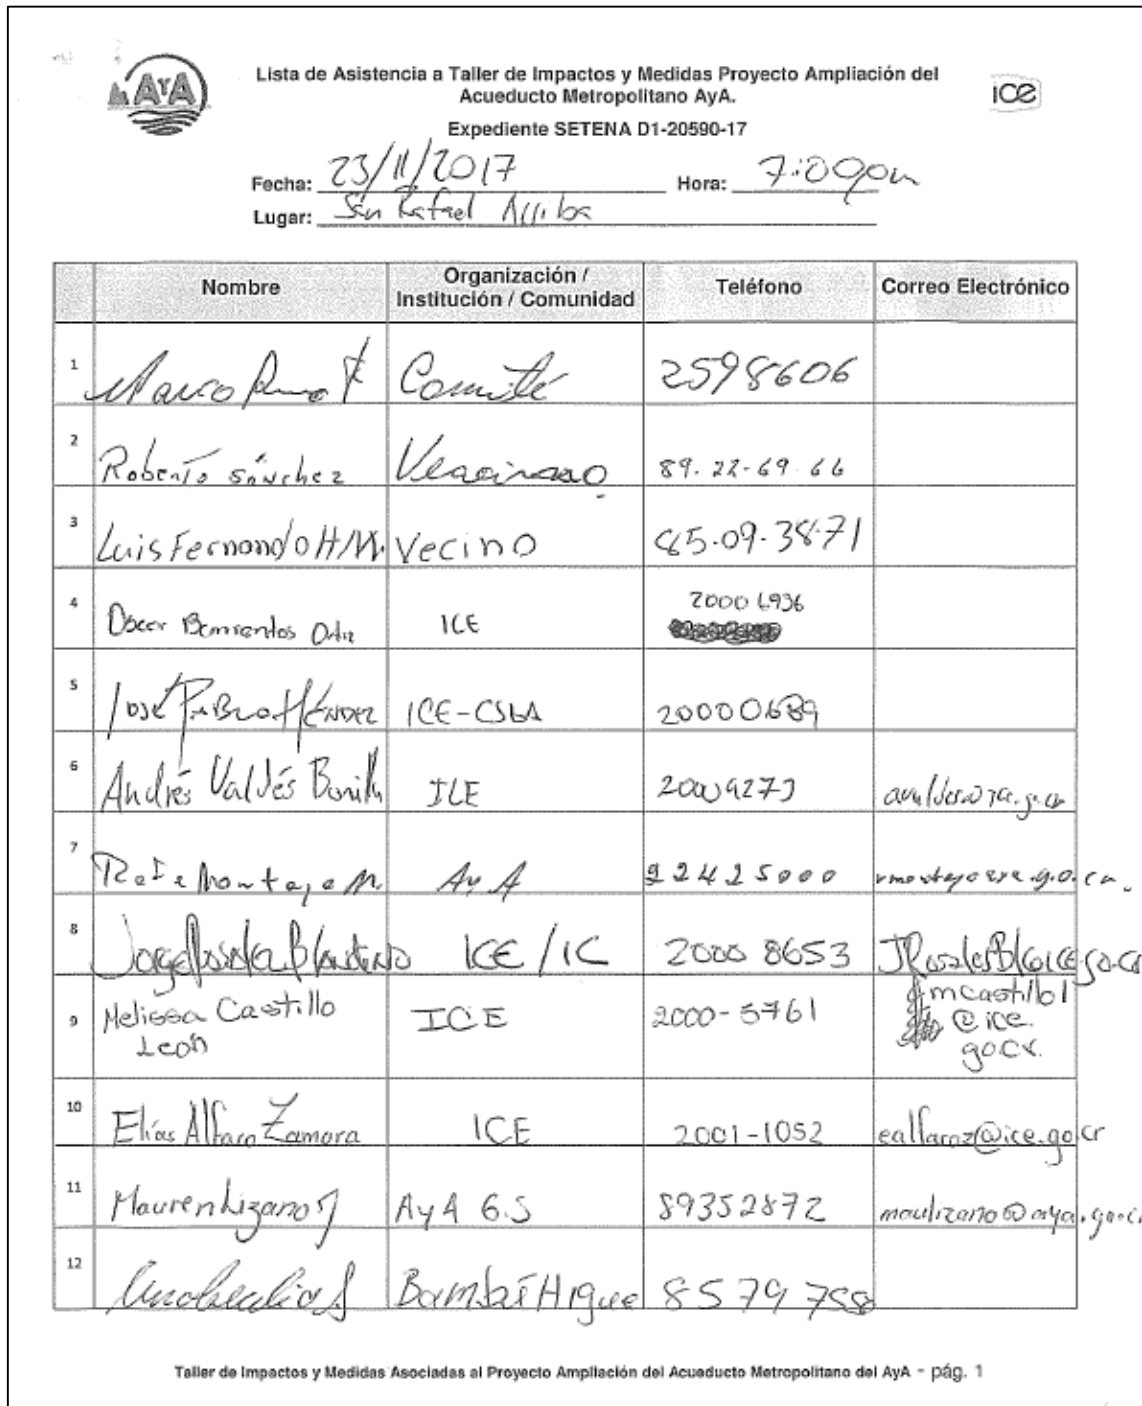 AyA
Lista de Asistencia a Taller de Impactos y Medidas Proyecto Ampliación del
Acueducto Metropolitano AyA.
ice
Expediente SETENA D1-20590-17
Fecha: 23/11/2017 Hora: 7:00pm
Lugar: San Rafael Arriba
Nombre Organización / Institución / Comunidad Teléfono Correo Electrónico
1 Marco Comité 2598606
2 Roberto Sánchez 89.22-69.66
3 Luis Fernando H/M. Vecino 85.09.38.71
4 Oscar Barrientos Ortiz ICE 2000 6936
5 José Pablo Méndez ICE-CSbA 20000689
6 Andrés Valdés Bonilla ICE 20009273
7 Montoya M. AyA 22425000
8 Jorge Rosales Blandino ICE/IC 2000 8653
9 Melissa Castillo León ICE 2000-5761 mcastillol
@ice.
go.cr.
10 Elías Alfaro Zamora ICE 2001-1052 ealfaroz@ice.go.cr
11 Mauren Lizano AyA G.S 89352872 maulizano@aya.go.cr
12 8579
Taller de Impactos y Medidas Asociadas al Proyecto Ampliación del Acueducto Metropolitano del AyA - pág. 1